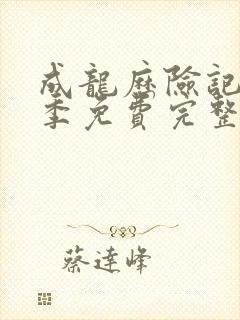 成龍歷險記
季免費完整
蔡達峰